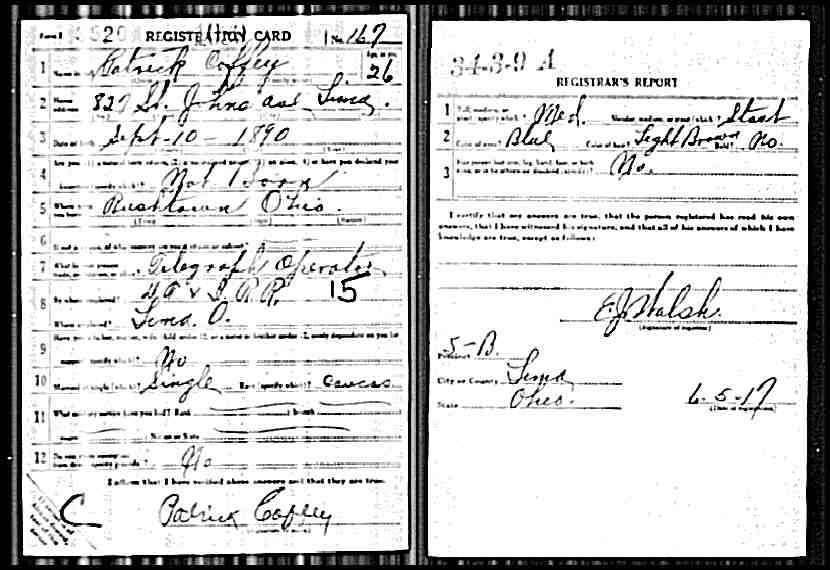 Form 1 1520 REGISTRATION CARD No. 167
1 Name in Patrick Coffey Age, in yrs. 26
2 Home address 827 St. Johns ave Lima.
3 Date of birth Sept-10- 1890
Are you (1) a natural born citizen, (2) a naturalized citizen, (3) an alien, (4) or have you declared your
4 intention (specify which)? Nat Born
5 Where were you born? Rushtown Ohio.
(Town) (State) (Nation)
6 If not a citizen, of what country are you a citizen or subject?
7 What is your present trade, occupation, or office? Telegraph Operator
8 By whom employed? D.T. & I. R.R. 15
Where employed? Lima. O.
9 Have you a father, mother, wife, child under 12, or a sister or brother under 12, solely dependent on you for
support (specify which)? No
10 Married or single (which)? Single Race (specify which)? Caucas
11 What military service have you had? Rank branch
years Nation or State
12 Do you claim exemption from draft (specify grounds)? No
I affirm that I have verified above answers and that they are true.
C Patrick Coffey
34-3-9 A
REGISTRAR'S REPORT
1 Tall, medium, or short (specify which)? Med. Slender, medium, or stout (which)? Stout
2 Color of eyes? Blue Color of hair? Light Brown Bald? No.
3 Has person lost arm, leg, hand, foot, or both eyes, or is he otherwise disabled (specify)? No.
I certify that my answers are true, that the person registered has read his own
answers, that I have witnessed his signature, and that all of his answers of which I have
knowledge are true, except as follows:
E.J. Walsh.
(Signature of registrar)
Precinct 5-B.
City or County Lima
State Ohio. 6-5-17
(Date of registration)